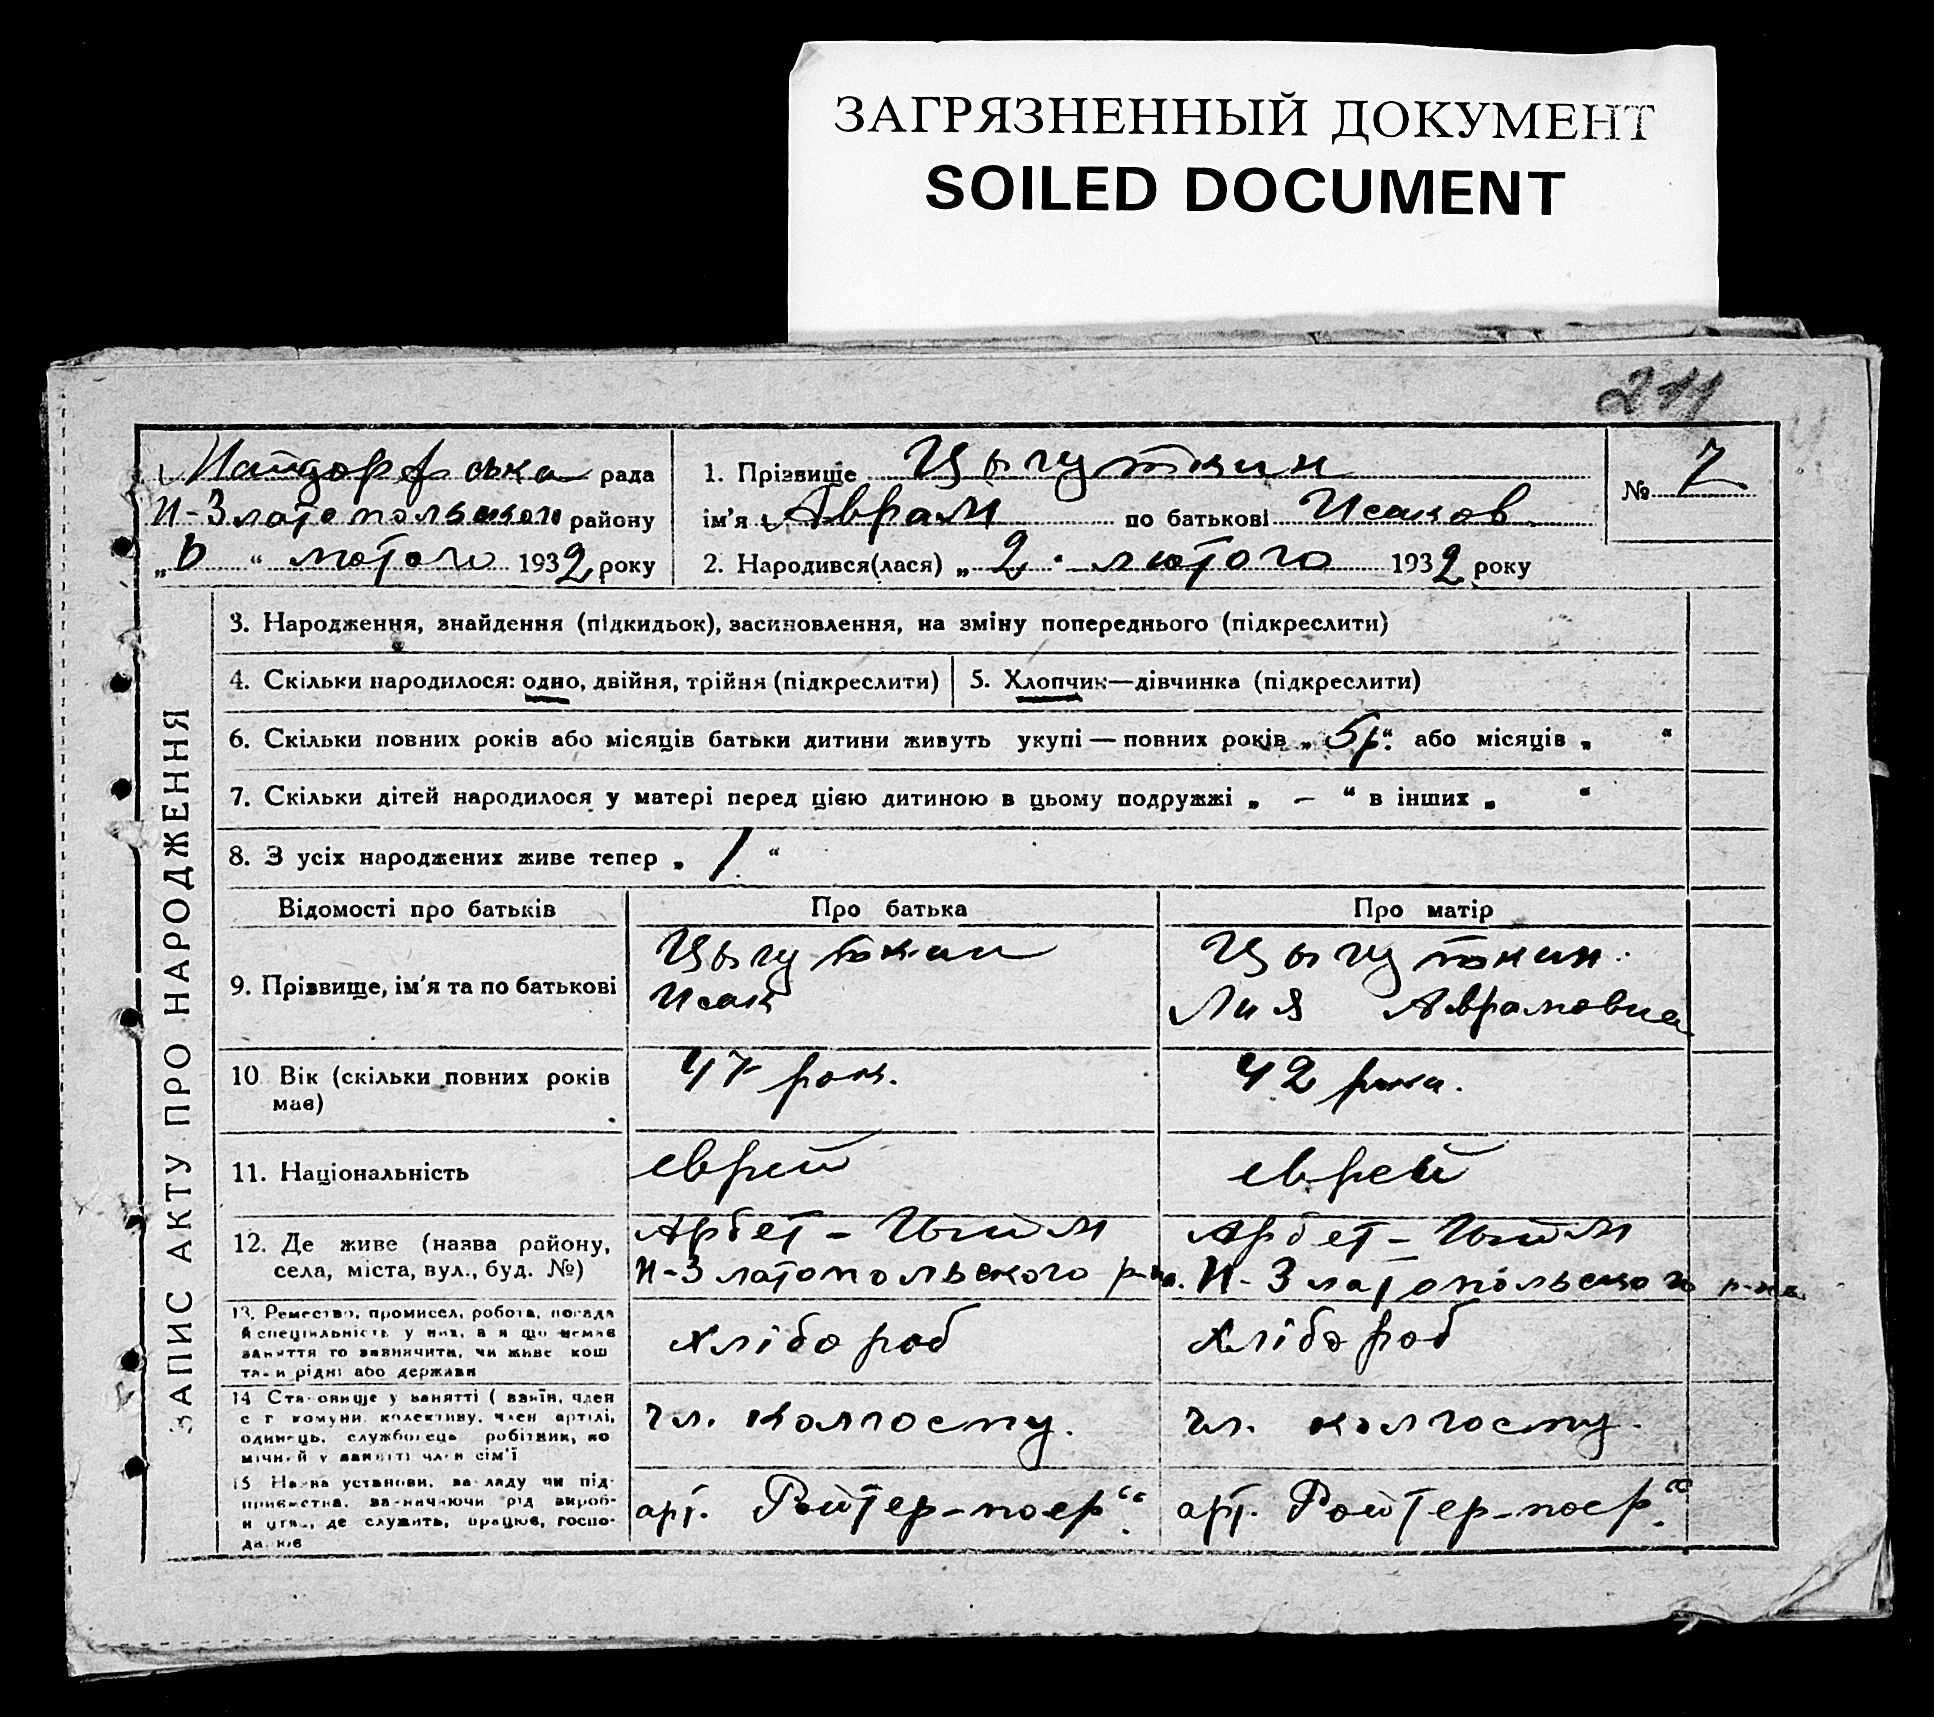 ЗАГРЯЗНЕННЫЙ ДОКУМЕНТ
SOILED DOCUMENT
211
рада
Н-Златопольського району
„ “ лютого 1932 року
1. Прізвище Цыгуткин
№ 7
ім'я Аврам по батькові Исаков
2. Народився(лася) „2“ лютого 1932 року
ЗАПИС АКТУ ПРО НАРОДЖЕННЯ
3. Народження, знайдення (підкидьок), засиновлення, на зміну попереднього (підкреслити)
4. Скільки народилося: одно, двійня, трійня (підкреслити)
5. Хлопчик—дівчинка (підкреслити)
6. Скільки повних років або місяців батьки дитини живуть укупі — повних років „5р.“ або місяців „ “
7. Скільки дітей народилося у матері перед цією дитиною в цьому подружжі „ — “ в інших „ “
8. З усіх народжених живе тепер „ 1 “
Відомості про батьків
Про батька
Про матір
9. Прізвище, ім'я та по батькові
Цыгуткин
Исак
Цыгуткин
Лия Аврамовна
10 Вік (скільки повних років має)
47 рок.
42 рока.
11. Національність
еврей
еврей
12. Де живе (назва району, села, міста, вул., буд. №)
Арбет-
Н-Златопольского р-на.
Арбет-
Н-Златопольского р-на.
13. Ремество, промисел, робота, посада
й спеціяльність у них, а я що немає
заняття то зазначити, чи живе кош
хлібороб
хлібороб
14 Становище у занятті ( член
с г комуни, колективу, член артілі,
одинець, службовець робітник, по
член сім'ї
чл. колгоспу.
чл. колгоспу.
15 Назва установи, закладу чи під-
приємства, зазначаючи рід вироб-
де служить, працює, госпо-
арт. Ройтер-поер“
арт. Ройтер-поер“